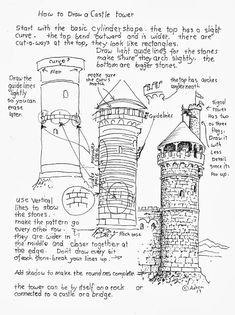 How to Draw a Castle tower
Start with the basic cylinder shape. the top has a slight
curve. the top bends outward and is wider. there are
cut-a ways at the top, they look like rectangles.
Draw light guidelines for the stones
make sure they arch slightly. the
bottom are bigger stones.
Draw the
guidelines
lightly
so you can
erase
later.
curve
make sure
the curves
match
the top has arches
underneath
Guidelines
Signal
tower
Has two
or three
flags.
Draw it
with
Less
Detail
since its
far away
Rock base
Use Vertical
lines to show
the stones.
make the pattern go
every other row.
they are wider in
the middle and closer together at
the edges. Don't draw every bit
of each stone-break your lines up.
Add shadow to make the roundness complete.
the tower can be by itself on a rock or
connected to a castle or a bridge.